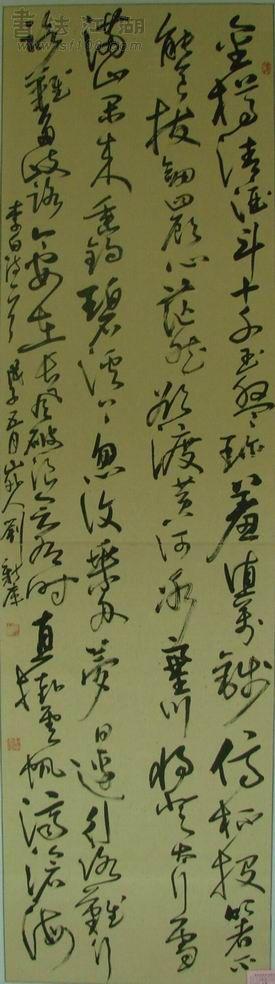 書法江湖
金樽清酒斗十千玉盤珍羞值萬錢停杯投箸不
能食拔劍四顧心茫然欲渡黄河冰塞川將登太行雪
滿山閑來垂釣碧溪上忽復乘舟夢日邊行路難行
路難多歧路今安在長風破浪會有時直掛雲帆濟滄海
李白詩一首 戊子五月 人劉